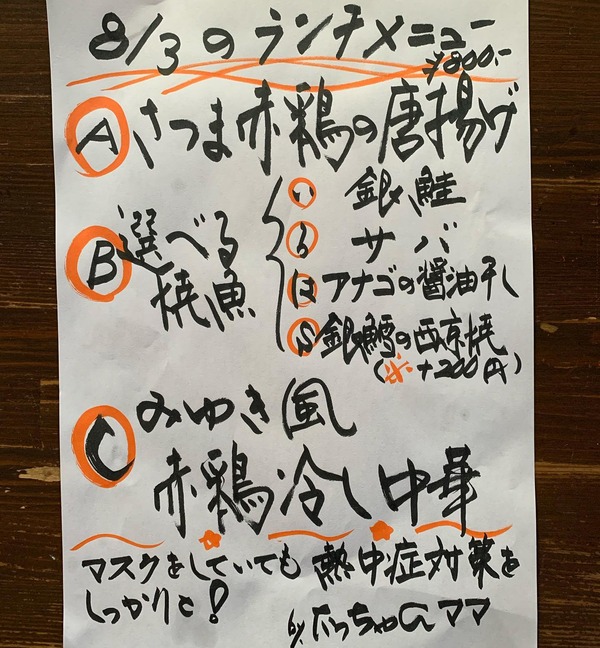 8/3のランチメニュー
¥800.-
A さつま赤鶏の唐揚げ
B 選べる焼魚
い 銀鮭
ろ サバ
は アナゴの醤油干し
S 銀鱈の西京焼
(※+200円)
C みゆき風
赤鶏冷し中華
マスクをしていても 熱中症対策を
しっかりと!
by.たっちゃんママ